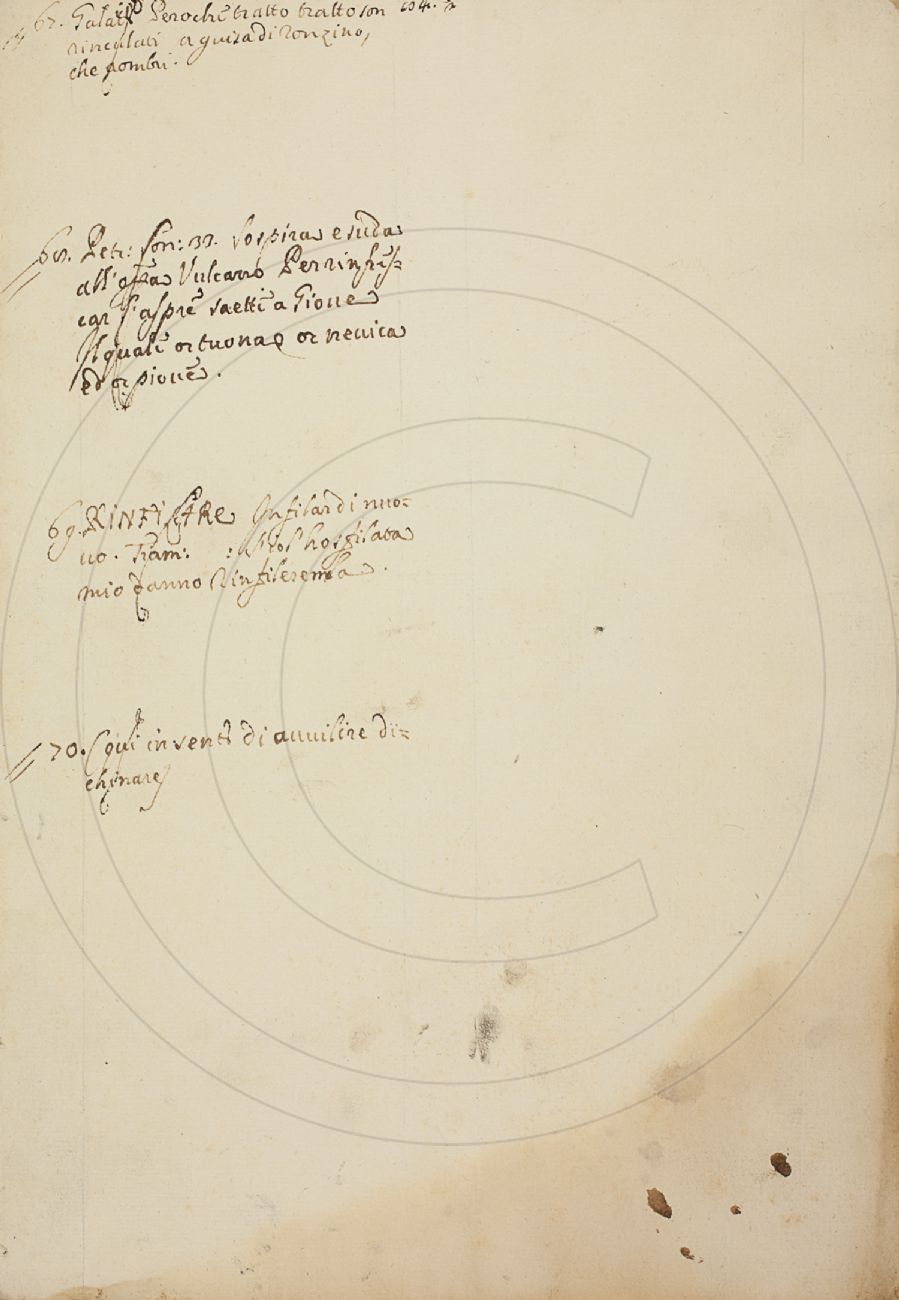 67. Galat: Peroche tratto tratto son
rinculati a guisa di Ronzino,
che pombri.
68. Petr: son: 33. Sospira e suda
all'opra Vulcano Per rinfres=
car l'aspre saette a Gioue
Il quale or tuona, or neuica
ed or pioue.
69. RINFILARE Infilar di nuo=
uo. Fram: : S'tosto ho sfilata
mio danno Rinfileremla.
70. Qui in sento di auuilire di=
chinare